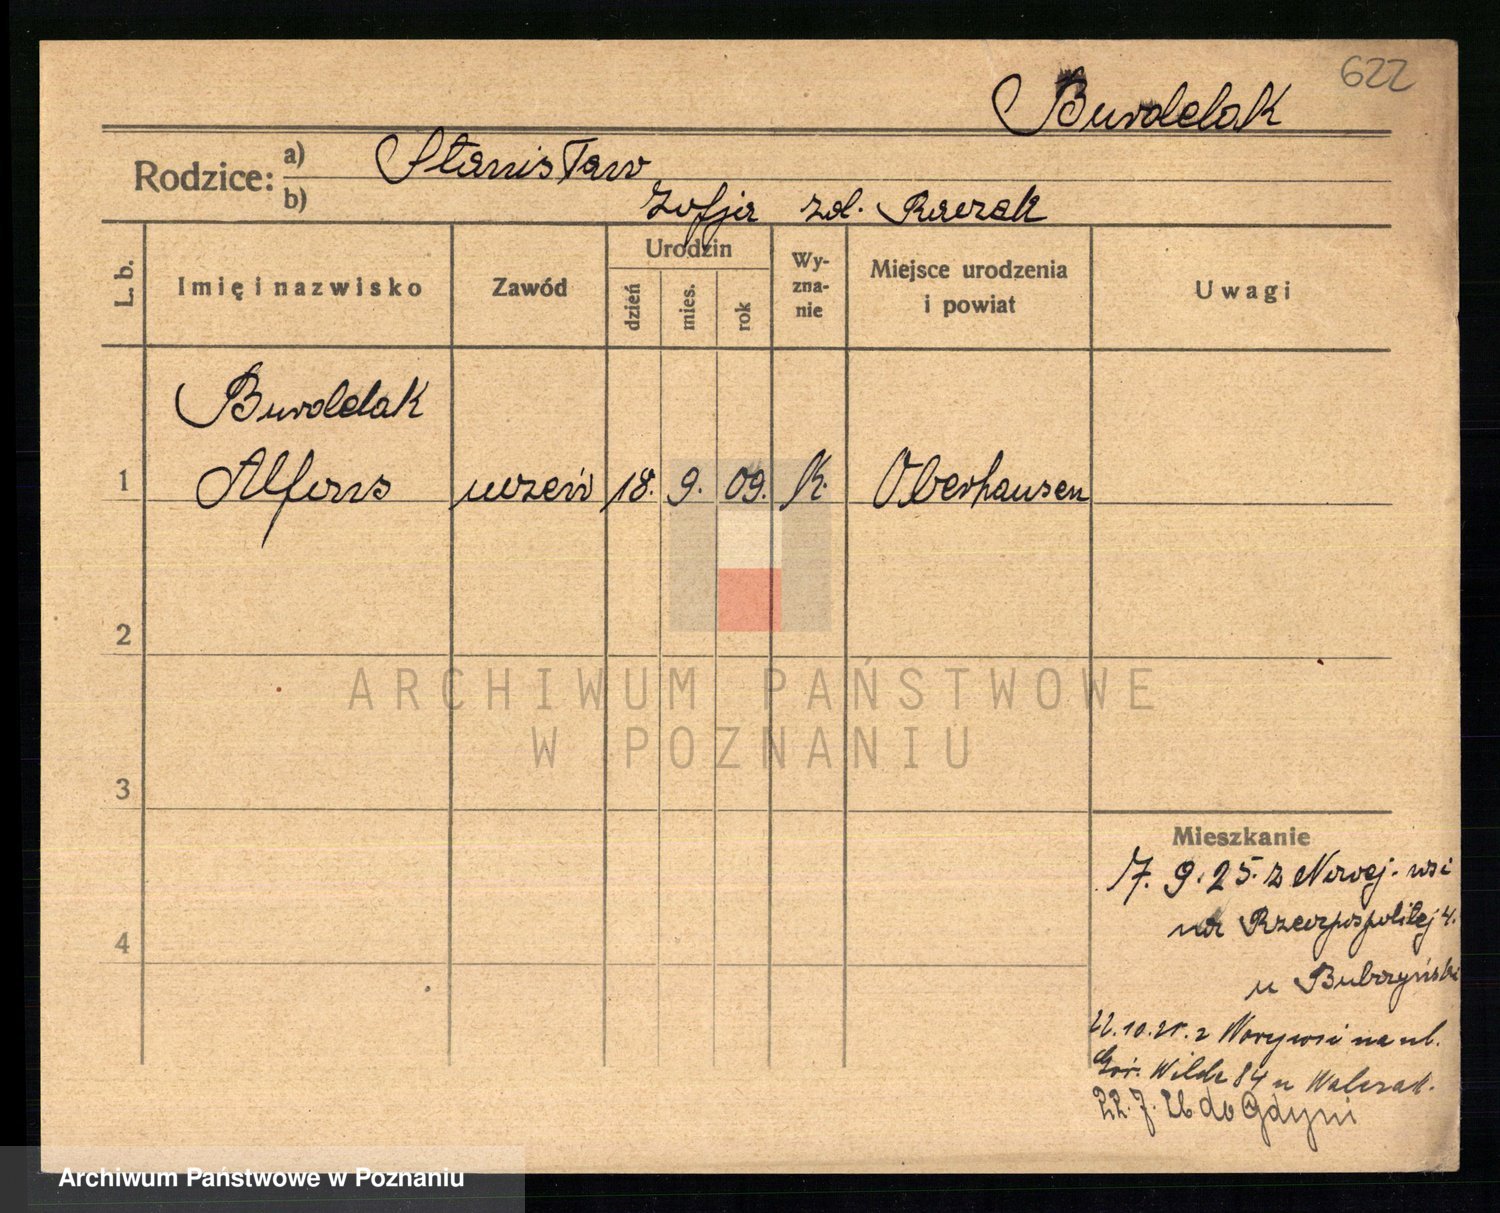 622
Burdelak
Rodzice:
a) Stanisław
b) Zofja zd. Raczak
L. b.
Imię i nazwisko
Zawód
Urodzin
dzień
mies.
rok
Wy-
zna-
nie
Miejsce urodzenia
i powiat
Uwagi
Burdelak
1 Alfons uczeń 18. 9. 09. K. Oberhausen
2
ARCHIWUM PAŃSTWOWE
W POZNANIU
3
Mieszkanie
7. 9. 25. z Nowej-wsi
na Rzeczpospolitej 4.
4
u
22.10.25. z Nowejwsi na ul.
Gór. Wilda 84 u
22. 7. 26 do Gdyni
Archiwum Państwowe w Poznaniu